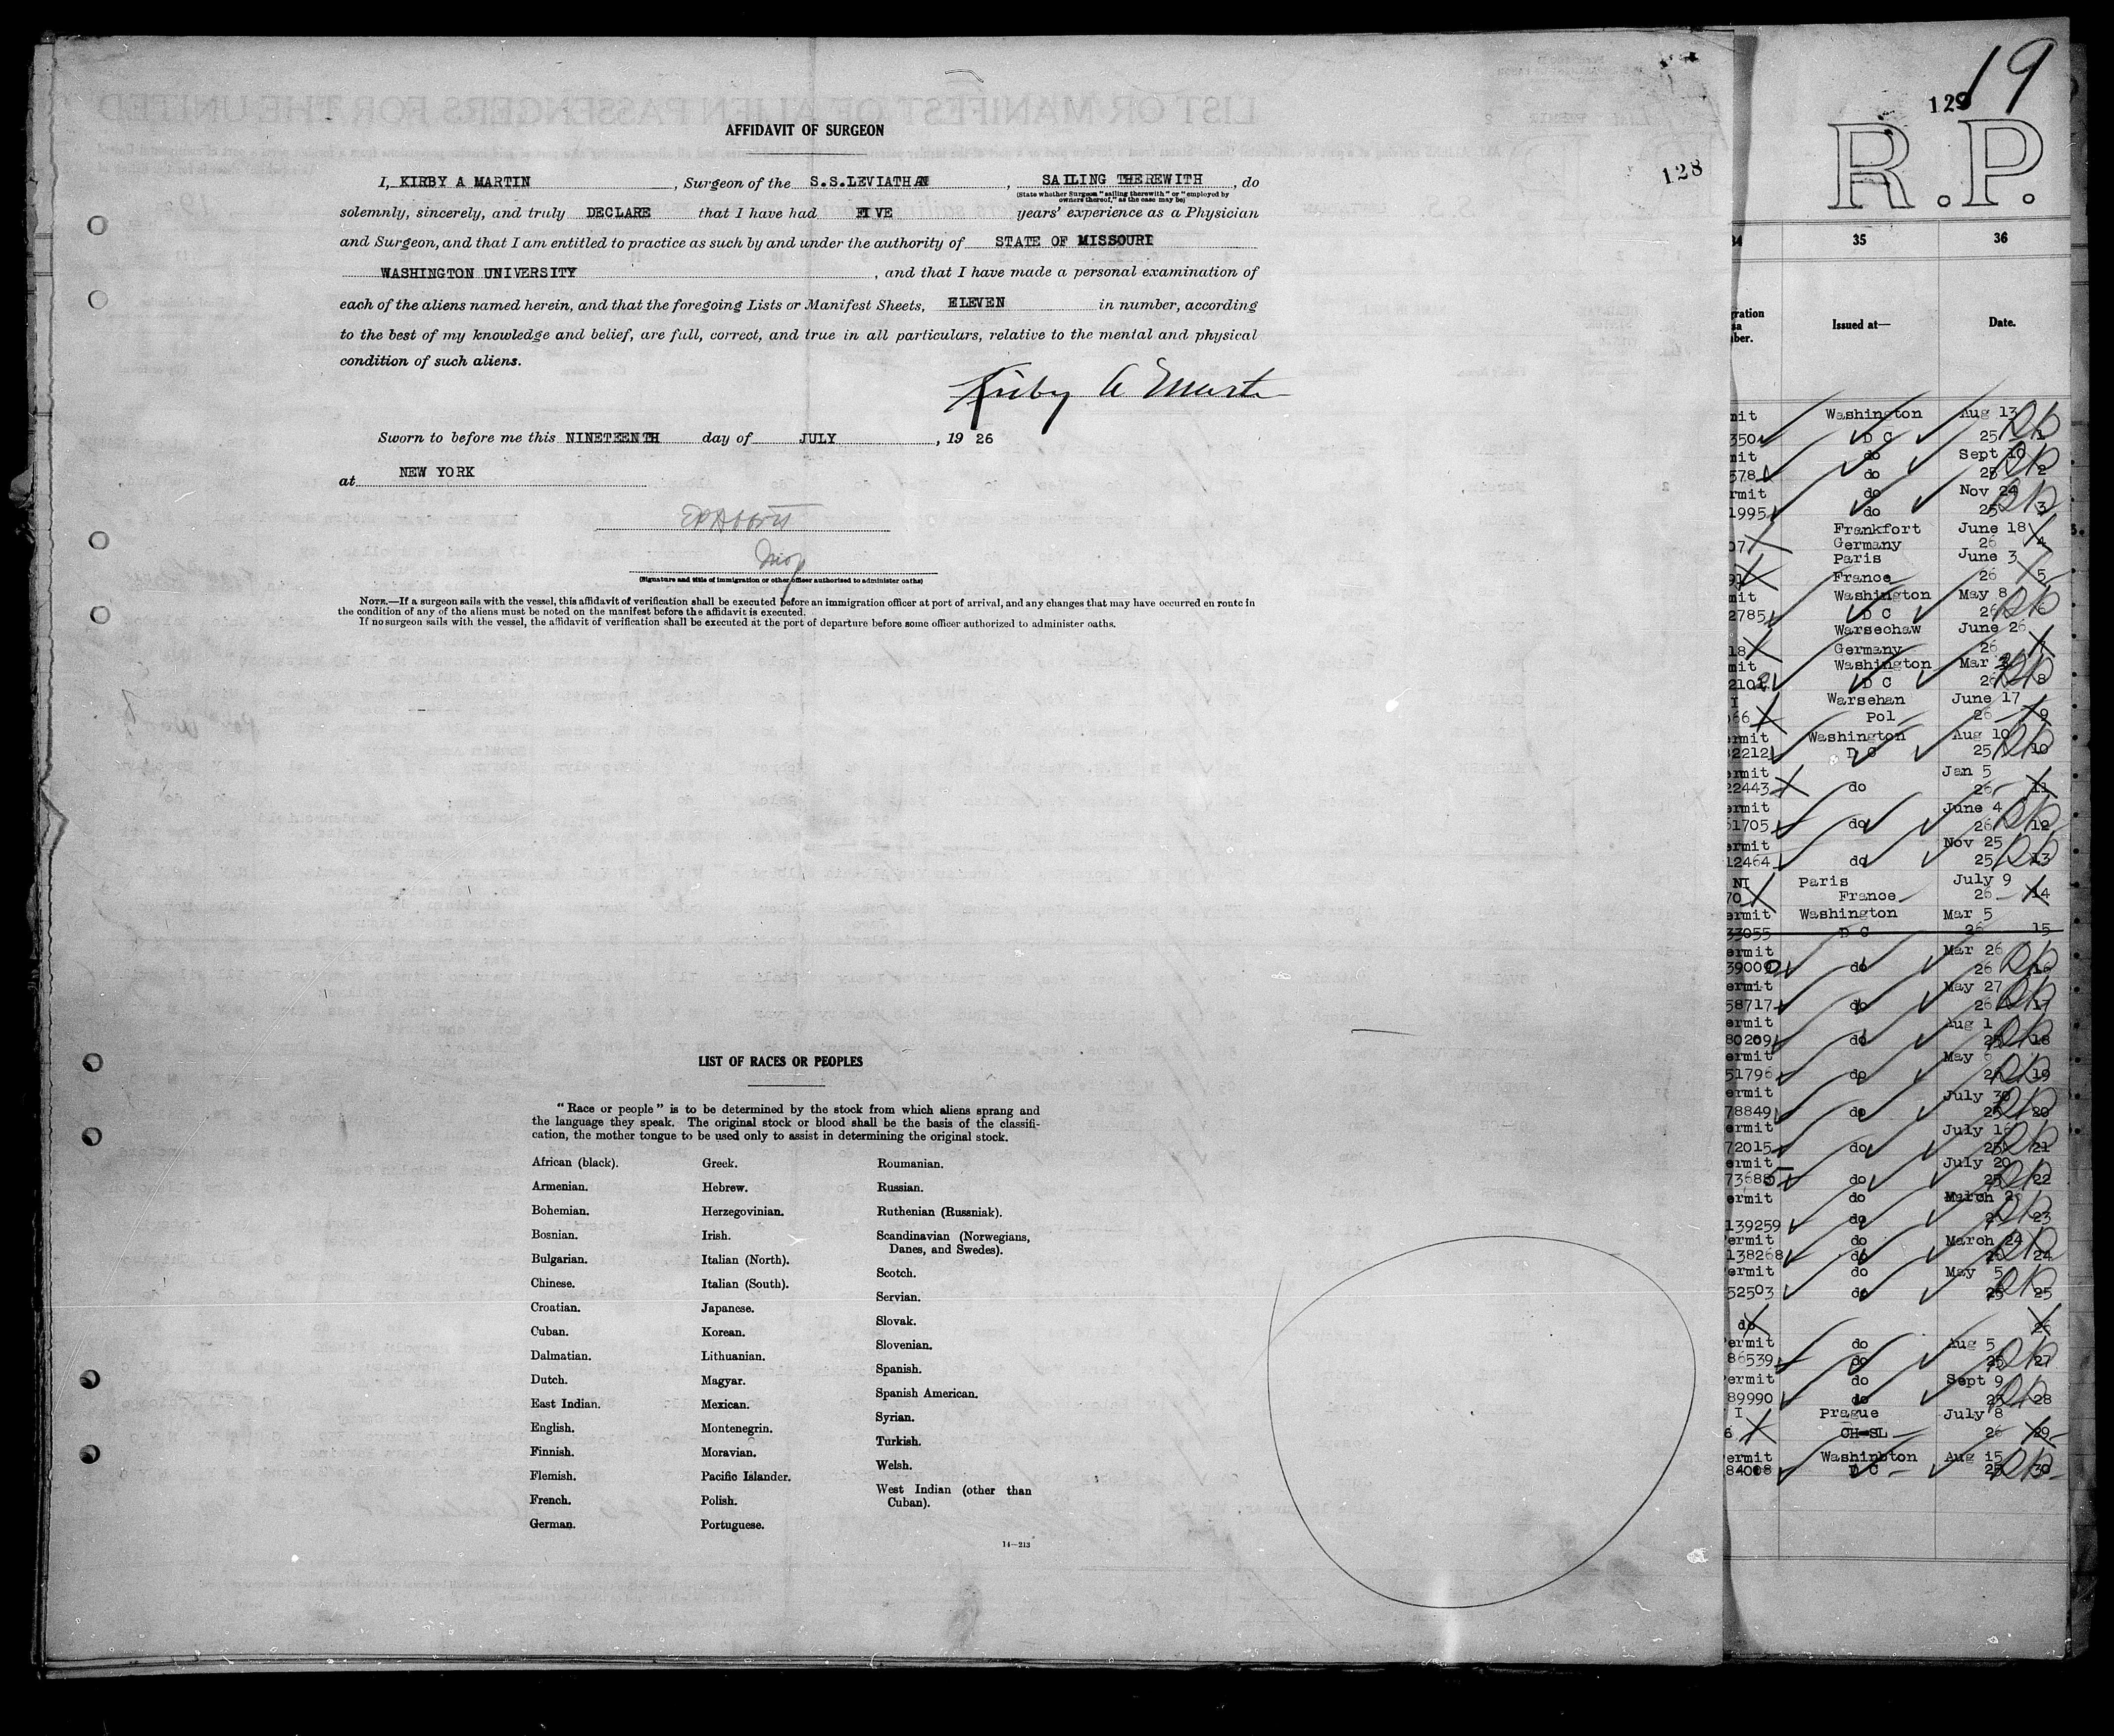 AFFIDAVIT OF SURGEON
128
I, KIRBY A MARTIN, Surgeon of the S.S.LEVIATHAN, SAILING THEREWITH, do
(State whether Surgeon "sailing therewith" or "employed by
owners thereof," as the case may be)
solemnly, sincerely, and truly DECLARE that I have had FIVE years' experience as a Physician
and Surgeon, and that I am entitled to practice as such by and under the authority of STATE OF MISSOURI
WASHINGTON UNIVERSITY, and that I have made a personal examination of
each of the aliens named herein, and that the foregoing Lists or Manifest Sheets, ELEVEN in number, according
to the best of my knowledge and belief, are full, correct, and true in all particulars, relative to the mental and physical
condition of such aliens.
Kirby A Martin
Sworn to before me this NINETEENTH day of JULY, 19 26
at NEW YORK
(Signature and title of immigration or other officer authorized to administer oaths)
NOTE.—If a surgeon sails with the vessel, this affidavit of verification shall be executed before an immigration officer at port of arrival, and any changes that may have occurred en route in
the condition of any of the aliens must be noted on the manifest before the affidavit is executed.
If no surgeon sails with the vessel, the affidavit of verification shall be executed at the port of departure before some officer authorized to administer oaths.
LIST OF RACES OR PEOPLES
"Race or people" is to be determined by the stock from which aliens sprang and
the language they speak. The original stock or blood shall be the basis of the classifi-
cation, the mother tongue to be used only to assist in determining the original stock.
African (black).
Armenian.
Bohemian.
Bosnian.
Bulgarian.
Chinese.
Croatian.
Cuban.
Dalmatian.
Dutch.
East Indian.
English.
Finnish.
Flemish.
French.
German.
Greek.
Hebrew.
Herzegovinian.
Irish.
Italian (North).
Italian (South).
Japanese.
Korean.
Lithuanian.
Magyar.
Mexican.
Montenegrin.
Moravian.
Pacific Islander.
Polish.
Portuguese.
Roumanian.
Russian.
Ruthenian (Russniak).
Scandinavian (Norwegians,
Danes, and Swedes).
Scotch.
Servian.
Slovak.
Slovenian.
Spanish.
Spanish American.
Syrian.
Turkish.
Welsh.
West Indian (other than
Cuban).
14—213
19
129
R.P.
34 35 36
Issued at— Date.
Washington Aug 13
D C 25 1
do Sept 10
578 do 25 2
do Nov 24
1995 do 25 3
Frankfort June 18
Germany 26 4
Paris June 3
France 26 5
Washington May 8
2785 D C 26 6
Warsechaw June 26
Germany 26 7
Washington Mar
D C 26 8
Warsehan June 17
66 Pol 26 9
Washington Aug 10
32212 D C 25 10
Jan 5
22443 do 26 11
June 4
51705 do 26 12
Nov 25
12464 do 25 13
NI Paris July 9
70 France 26 14
Washington Mar 5
33055 D C 26 15
Mar 26
39009 do 26 16
May 27
58717 do 26 17
Aug 1
80209 do 25 18
May 6
51796 do 26 19
July 30
78849 do 25 20
July 16
72015 do 25 21
July 20
do 25 22
do March 26
139259 do 23
Permit do March 24
138268 do 26 24
do May 5
52503 do 25
do 26
Permit do Aug 5
86539 do 25 27
Permit do Sept 9
89990 do 25 28
I Prague July 8
6 CH-SL 26 29
Permit Washinbton Aug 15
84008 D C 25 30